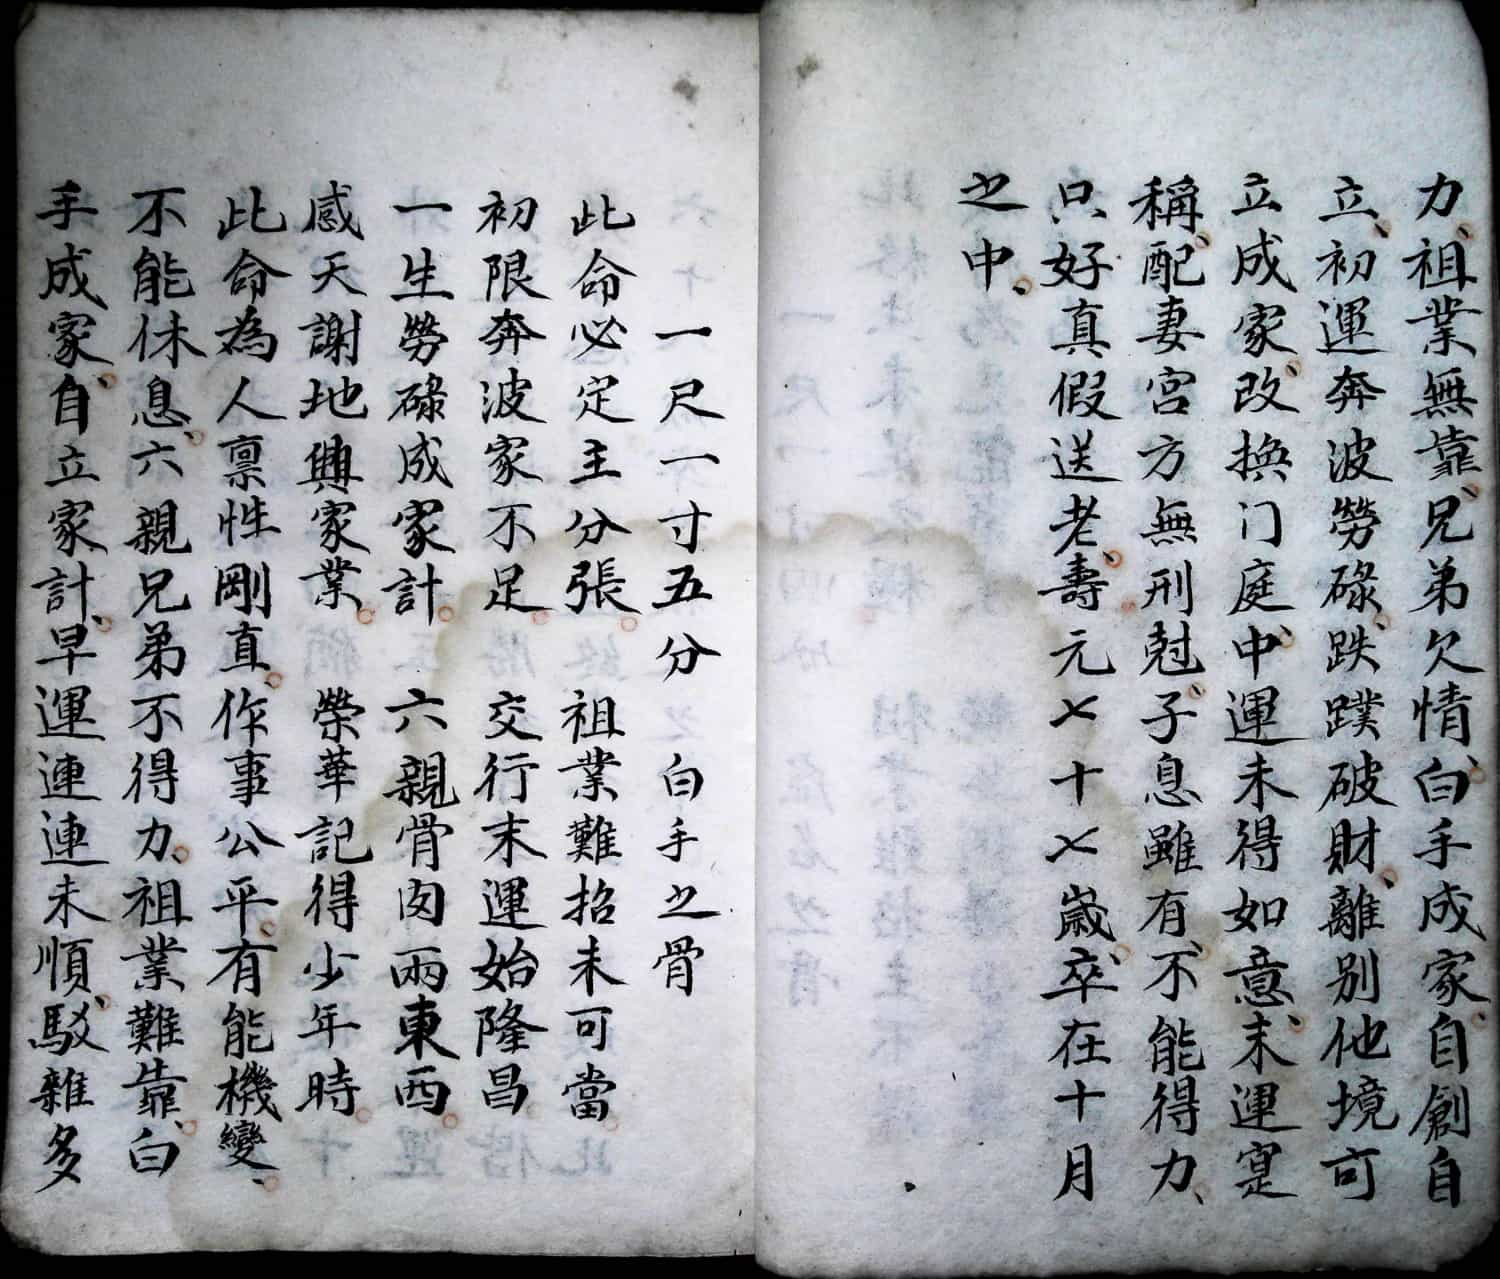 力、祖業無靠、兄弟欠情、白手成家、自創自
立、初運奔波勞碌、跌蹼破財、離別他境可
立成家、改換门庭、中運未得如意、末運寔
稱、配妻宮方無刑尅、子息雖有、不能得力、
只好真假送老、壽元〤十〤歲、卒在十月
之中、
一尺一寸五分 白手之骨
此命必定主分張 祖業難招未可當
初限奔波家不足 交行末運始隆昌
一生勞碌成家計 六親骨肉兩東西
感天謝地興家業 榮華記得少年時
此命為人禀性剛直、作事公平、有能機變、
不能休息、六親兄弟不得力、祖業難靠、白
手成家、自立家計、早運連連未順、駁雜多